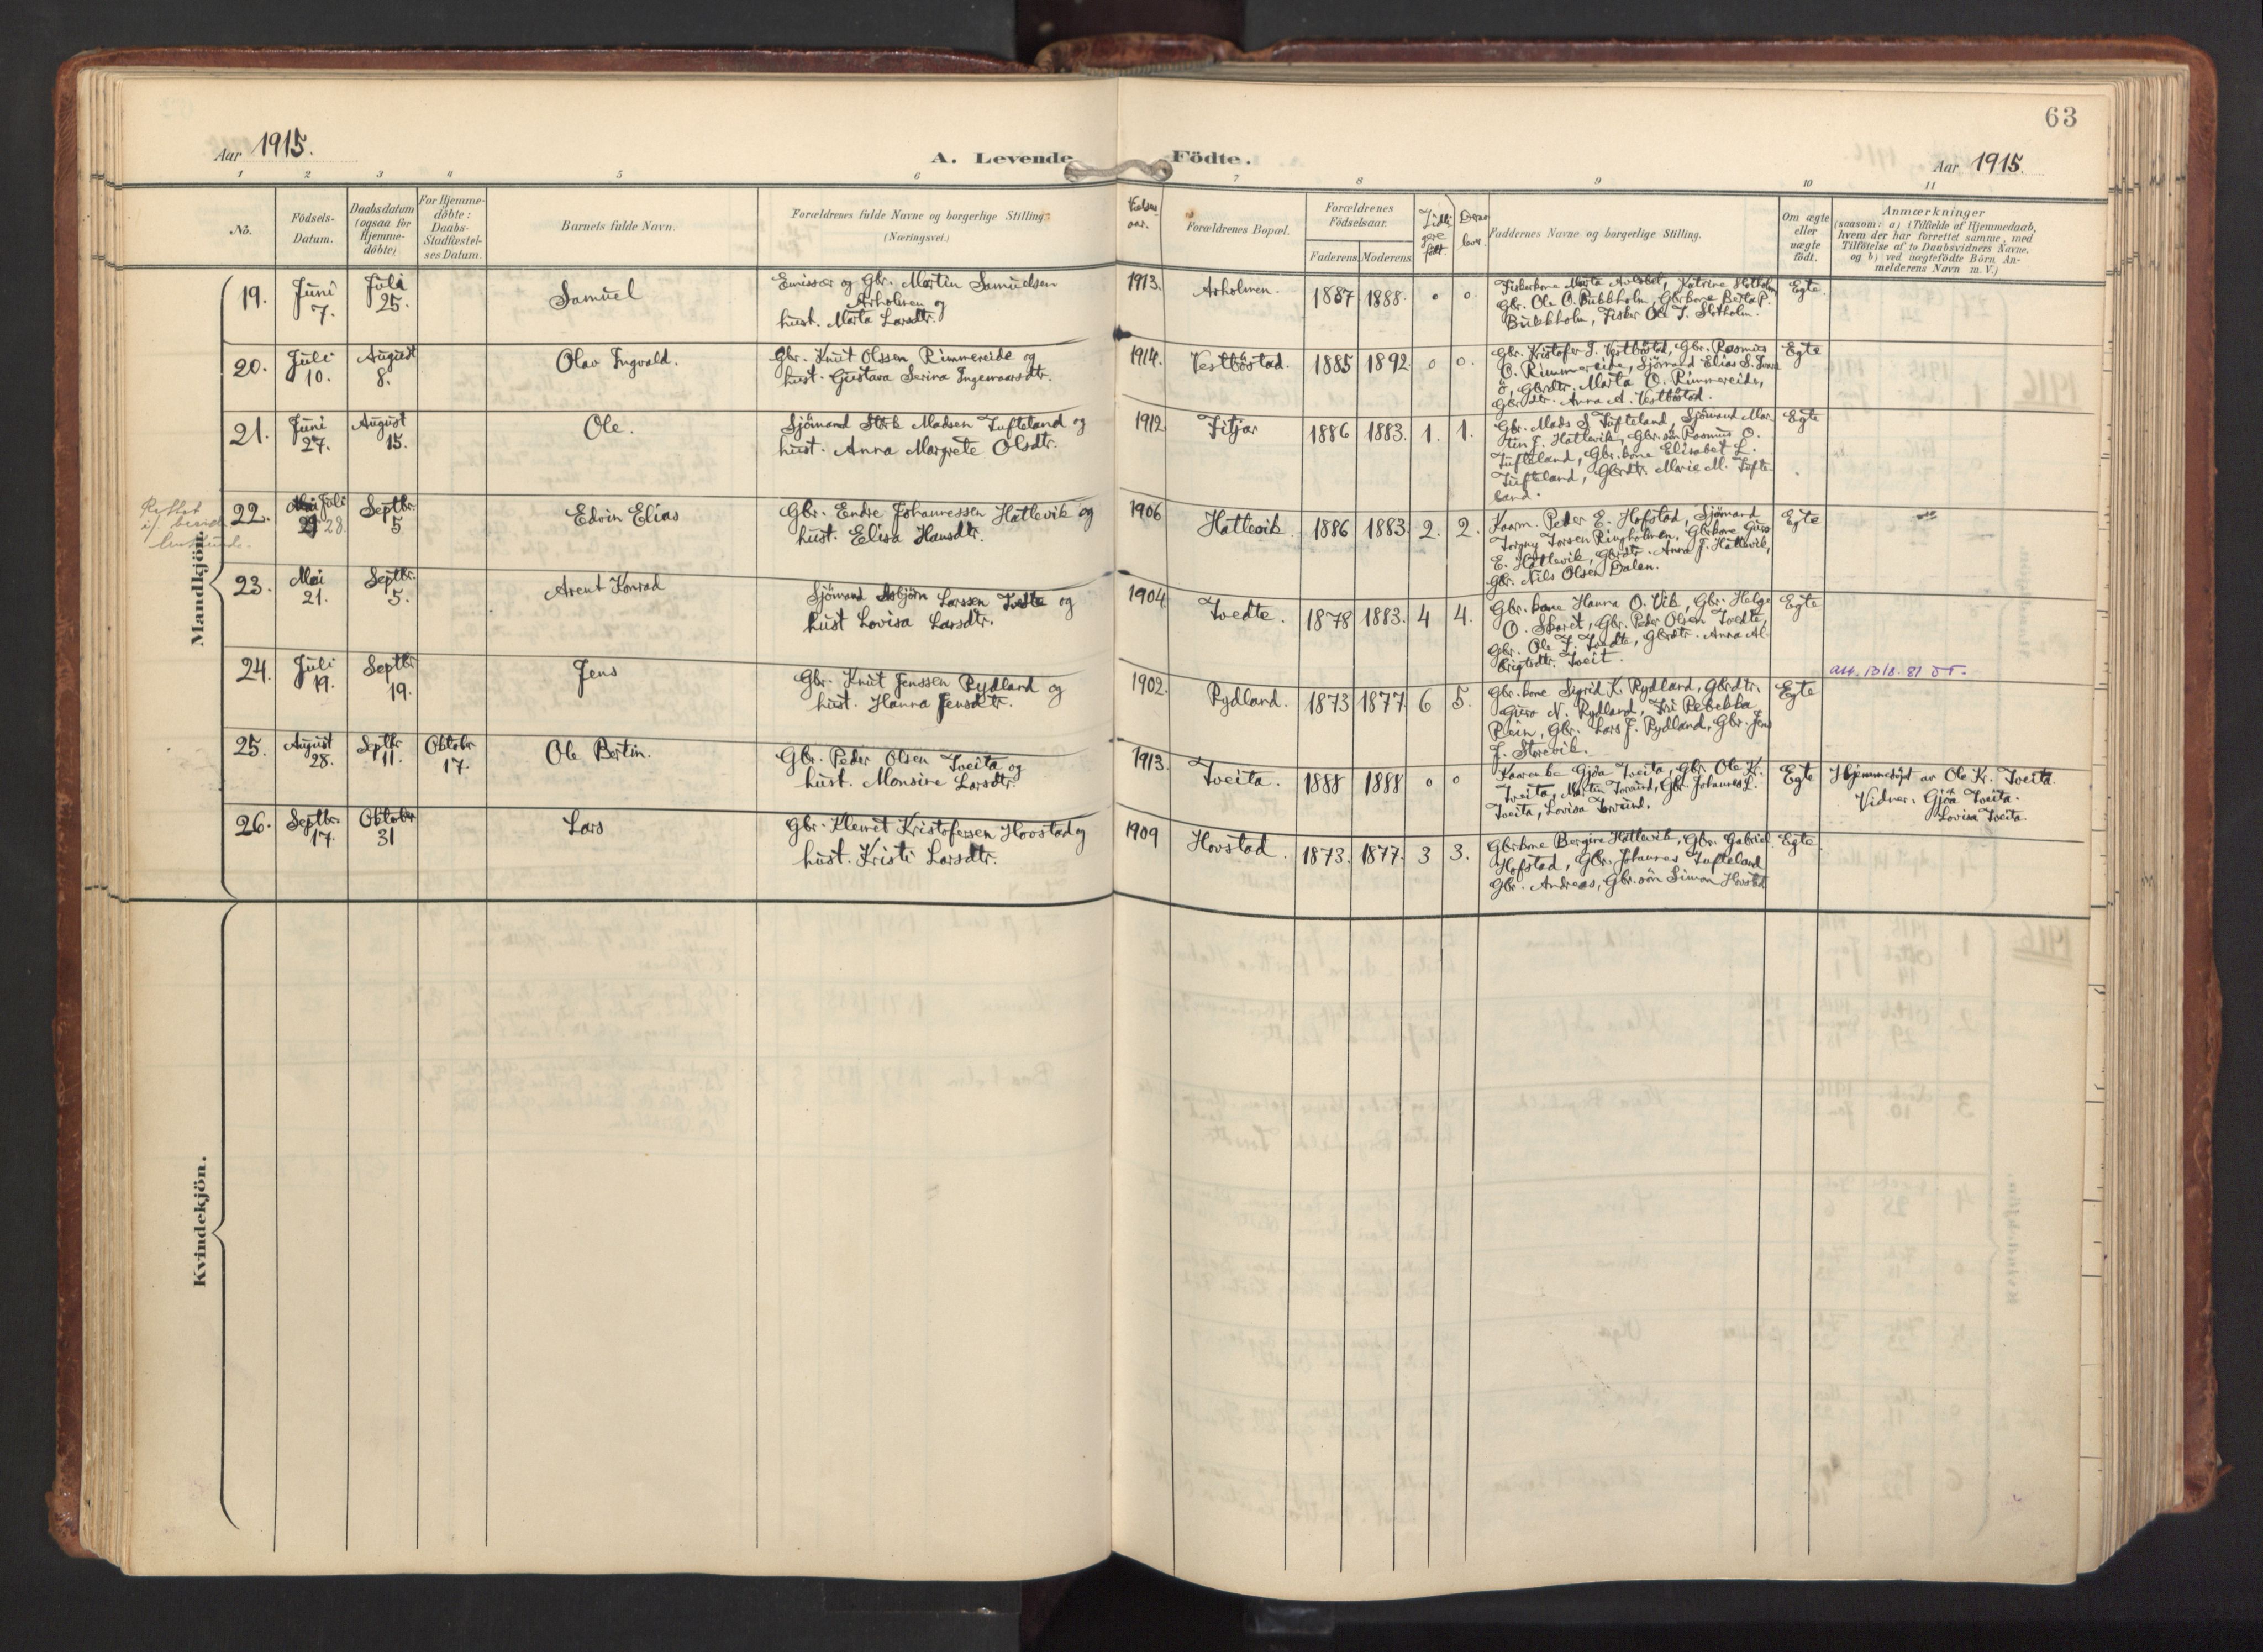 63
Aar 1915.
A. Levende Födte.
Aar 1915.
1 2 3 4 5 6 7 8 9 10 11
No.
Födsels-
Datum.
Daabsdatum
(ogsaa for
Hjemme-
döbte)
For Hjemme-
döbte:
Daabs-
Stadfæstel-
ses Datum.
Barnets fulde Navn.
Forældrenes fulde Navne og borgerlige Stilling.
(Næringsvei.)
Vielses-
aar.
Forældrenes Bopæl.
Forældrenes
Födselsaar.
Faderens Moderens
Tidli-
gere
født.
Derav
lever
Faddernes Navne og borgerlige Stilling.
Om ægte
eller
uægte
födt.
Anmærkninger
(saasom: a) i Tilfælde af Hjemmedaab,
hvem der har forrettet samme, med
Tilföielse af to Daabsvidners Navne.
og b) ved uægtefödte Börn An-
melderens Navn m. V.)
Mandkjön.
19. Juni 7. Juli 25. Samuel
Emissær og Gbr. Martin Samuelsen
Arholmen og
hust. Marta Larsdtr.
1913. Arholmen. 1887 1888. 0 0.
Fiskerkone Marta, Katrine Slotholm
Gbr. Ole O. Bukkholm, Gbrkone Berta P.
Bukkholm, Fisker Ole J. Slotholm.
Egte.
20. Juli 10. August 8. Olav Ingvald.
Gbr. Knut Olssen Rimmereide og
hust. Gustava Serina Ingemarsdtr.
1914. Vestböstad. 1885 1892 0 0.
Gbr. Kristofer J. Vestböstad, Gbr. Rasmus
O. Rimmereide, Sjömand Elias S.
ö, Gbrdtr. Marta O. Rimmereide,
Gbrdtr. Anna A. Vestböstad.
Egte
21. Juni 27. August 15. Ole.
Sjömand Störk Madsen Tufteland og
hust. Anna Margrete Olsdtr.
1912 Fitjar 1886 1883. 1. 1.
Gbr. Mads S. Tufteland, Sjömand Mar-
tin J. Hatlevik, Gbr.sön Rasmus O.
Tufteland, Gbr.kone Elisabet L.
Tufteland, Gbrdtr. Marie M. Tufte-
land.
Egte
Rettet
22. Juli 28. Septbr. 5 Edvin Elias
Gbr. Endre Johannessen Hatlevik og
hust. Elisa Hansdtr.
1906 Hatlevik 1886 1883. 2. 2.
Kaarm. Peder E. Hofstad, Sjömand
Torgny Torsen Ringholmen, Gbrkone Guro
E. Hatlevik, Gbrdtr. Anna J. Hatlevik,
Gbr. Nils Olsen Dalen.
Egte
23. Mai 21. Septbr. 5. Arent Konrad
Sjömand Asbjörn Larssen Tvedte og
hust Lovisa Larsdtr.
1904 Tvedte. 1878 1883. 4 4.
Gbr.kone Hanna O. Vik, Gbr. Helge
O. Skaret, Gbr. Peder Olsen Tvedte,
Gbr. Ole T. Tvedte, Gbrdtr. Anna Al-
brigtsdtr. Tveit.
Egte
24. Juli 19. Septbr 19. Jens
Gbr. Knut Jenssen Rydland og
hust. Hanna Jensdtr.
1902. Rydland. 1873 1877 6 5.
Gbr.kone Sigrid K. Rydland, Gbrdtr.
Guro N. Rydland, Fri Rebekka
Rein, Gbr. Lars J. Rydland, Gbr. Jens
J. Storevik.
Egte
att. 13/8. 81
25. August 28. Septbr. 11. Oktobr. 17. Ole Bertin.
Gbr. Peder Olsen Tveita og
hust. Monsine Larsdtr.
1913. Tveita. 1888 1888 0 0
Kaarenke Gjöa Tveita, Gbr. Ole K.
Tveita, Martin, Gbr. Johannes L.
Tveita, Lovisa
Egte
Hjemmedöpt av Ole Kr. Tveita.
Vidner: Gjöa Tveita.
Lovisa Tveita.
26. Septbr. 17. Oktobr 31 Lars
Gbr. Klemet Kristofersen Hovstad og
hust. Kristi Larsdtr.
1909 Hovstad. 1873. 1877. 3 3.
Gbrkone Bergine Hatlevik, Gbr. Gabriel
Hofstad, Gbr. Johannes Tufteland
Gbr. Andreas, Gbr.sön Simon Hovstad
Egte.
Kvindekjön.